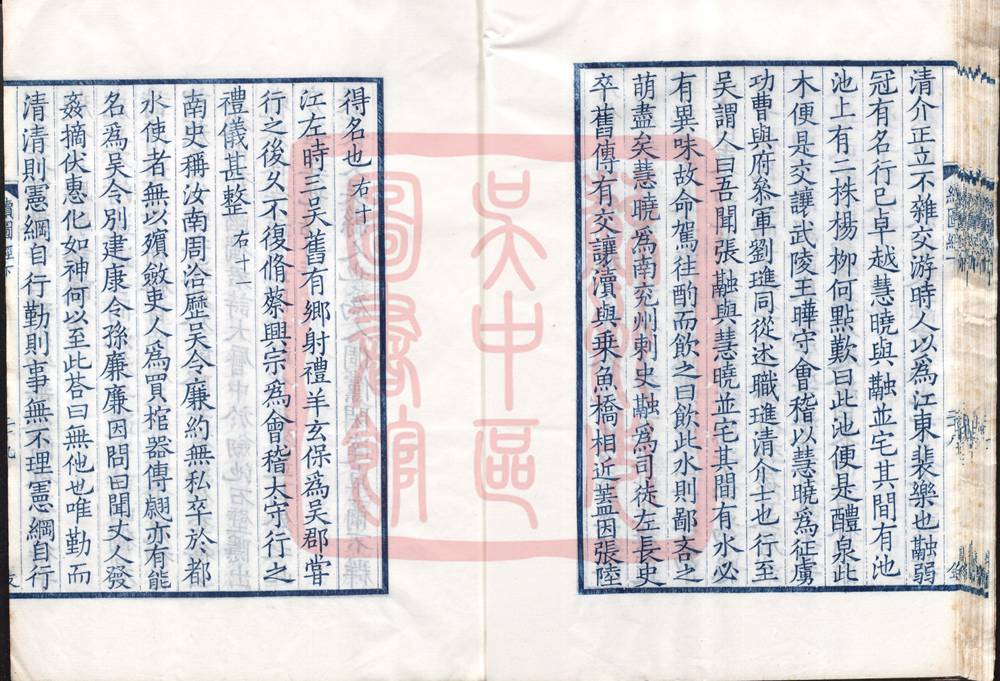 清介正立不雜交游時人以爲江東裴樂也融弱
冠有名行已卓越慧曉與融並宅其間有池
池上有二株楊柳何點歎曰此池便是醴泉此
木便是交讓武陵王曄守會稽以慧曉爲征虜
功曹與府叅軍劉璡同從述職璡清介士也行至
吳謂人曰吾聞張融與慧曉並宅其間有水必
有異味故命駕往酌而飲之曰飲此水則鄙吝之
萌盡矣慧曉爲南兖州刺史融爲司徒左長史
卒舊傳有交讓瀆與乗魚橋相近葢因張陸
得名也 右十
江左時三吳舊有鄉射禮羊玄保爲吳郡甞
行之後乆不復脩蔡興宗爲會稽太守行之
禮儀甚整 右十一
南史稱汝南周洽歷吳令廉約無私卒於都
水使者無以殯斂吏人爲買棺器傅翽亦有能
名爲吳令别建康令孫廉廉因問曰聞丈人發
姦摘伏惠化如神何以至此荅曰無他也唯勤而
清清則憲綱自行勤則事無不理憲綱自行
續圖經下
二十九
吳中區
圖書館